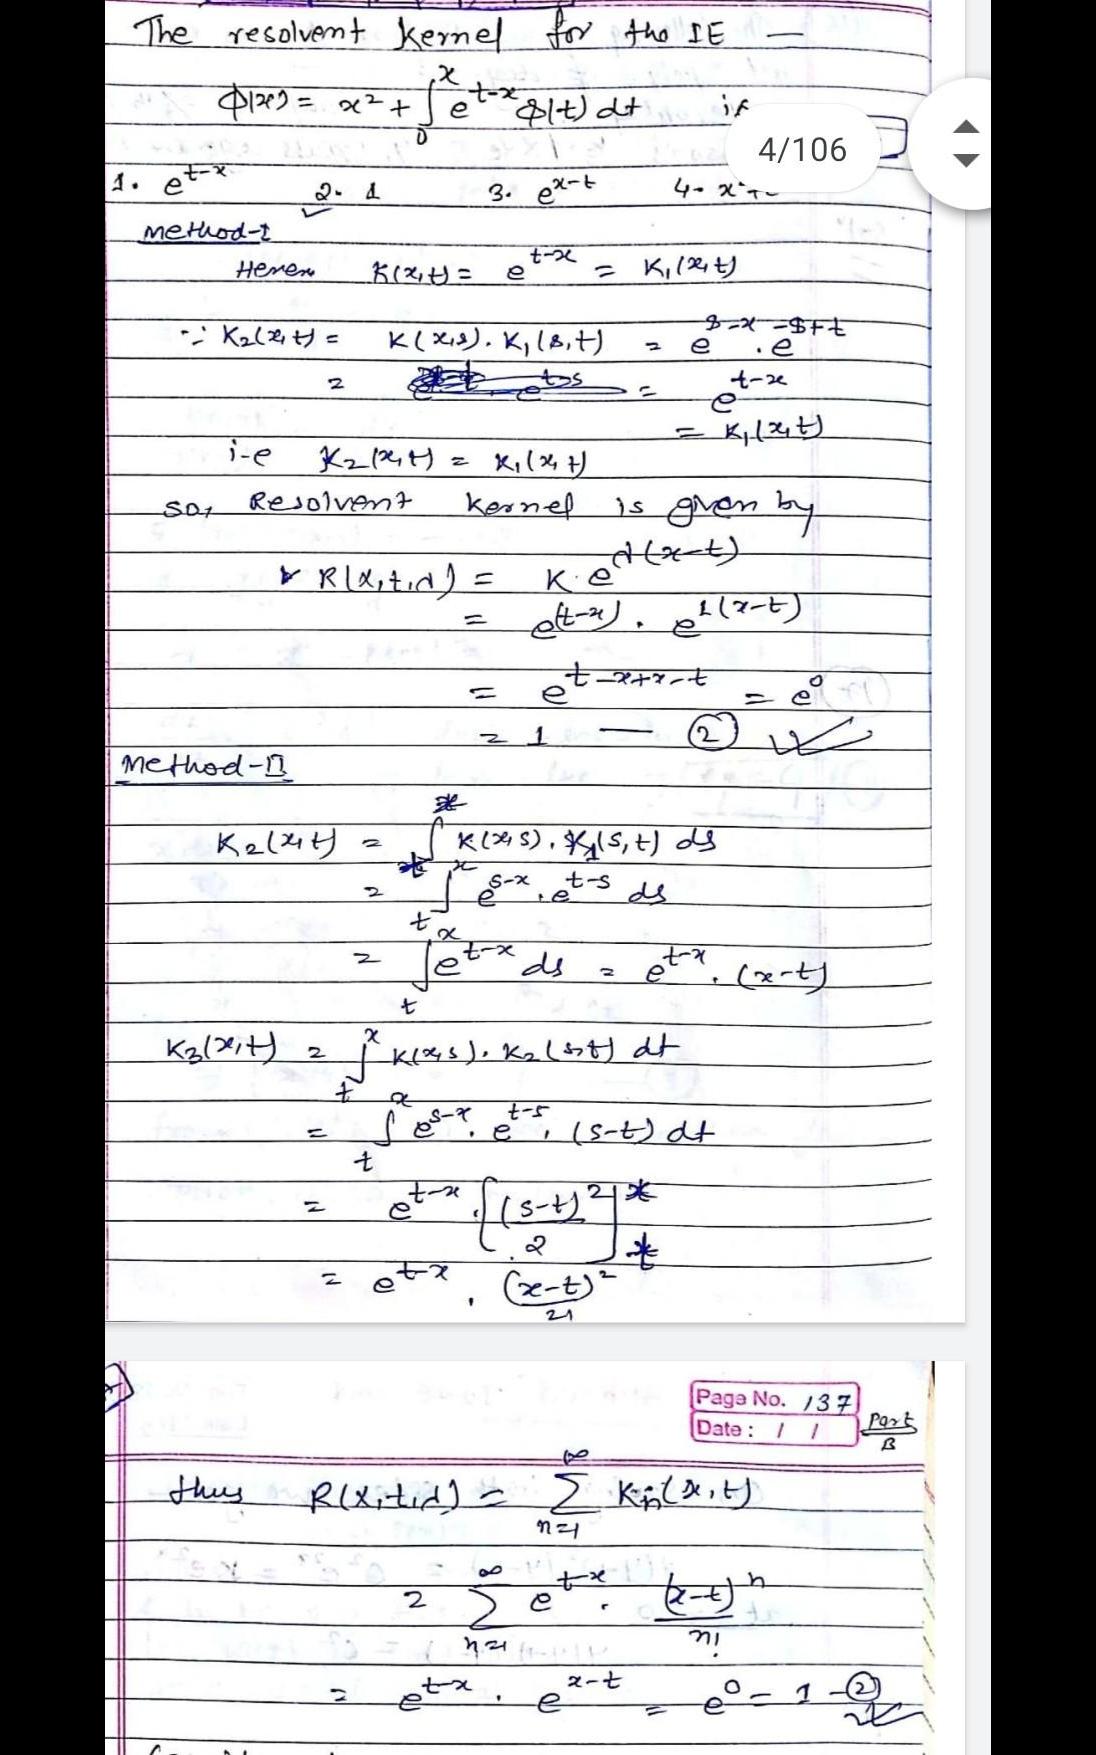 The resolvent kernel for the IE —
ϕ(x) = x² + ∫₀ˣ e^{t-x} ϕ(t) dt is
4/106
1. e^{t-x} 2. 1 3. e^{x-t} 4.
Method-I
K(x,t) = e^{t-x} = K₁(x,t)
∵ K₂(x,t) = K(x,s). K₁(s,t) = e^{s-x} . e^{-s+t}
= = e^{t-x}
= K₁(x,t)
i-e K₂(x,t) = K₁(x,t)
so, Resolvent kernel is given by
R(x,t,λ) = K. e^{λ(x-t)}
= e^{(t-x)} . e^{1(x-t)}
= e^{t-x+x-t} = e⁰
= 1 — ②
Method-II
K₂(x,t) = ∫ₜˣ K(x,s). K₁(s,t) ds
= ∫ₜˣ e^{s-x} . e^{t-s} ds
= ∫ₜˣ e^{t-x} ds = e^{t-x} . (x-t)
K₃(x,t) = ∫ₜˣ K(x,s). K₂(s,t) dt
= ∫ₜˣ e^{s-x} . e^{t-s} . (s-t) dt
= e^{t-x} . [(s-t)²/2]ₜˣ
= e^{t-x} . (x-t)²/2!
Page No. 137
Date : / / Part/B
thus R(x,t,λ) = ∑_{n=1}^{∞} Kₙ(x,t)
= ∑_{n=1}^{∞} e^{t-x} . (x-t)ⁿ/n!
= e^{t-x} . e^{x-t} = e⁰ = 1 - ②